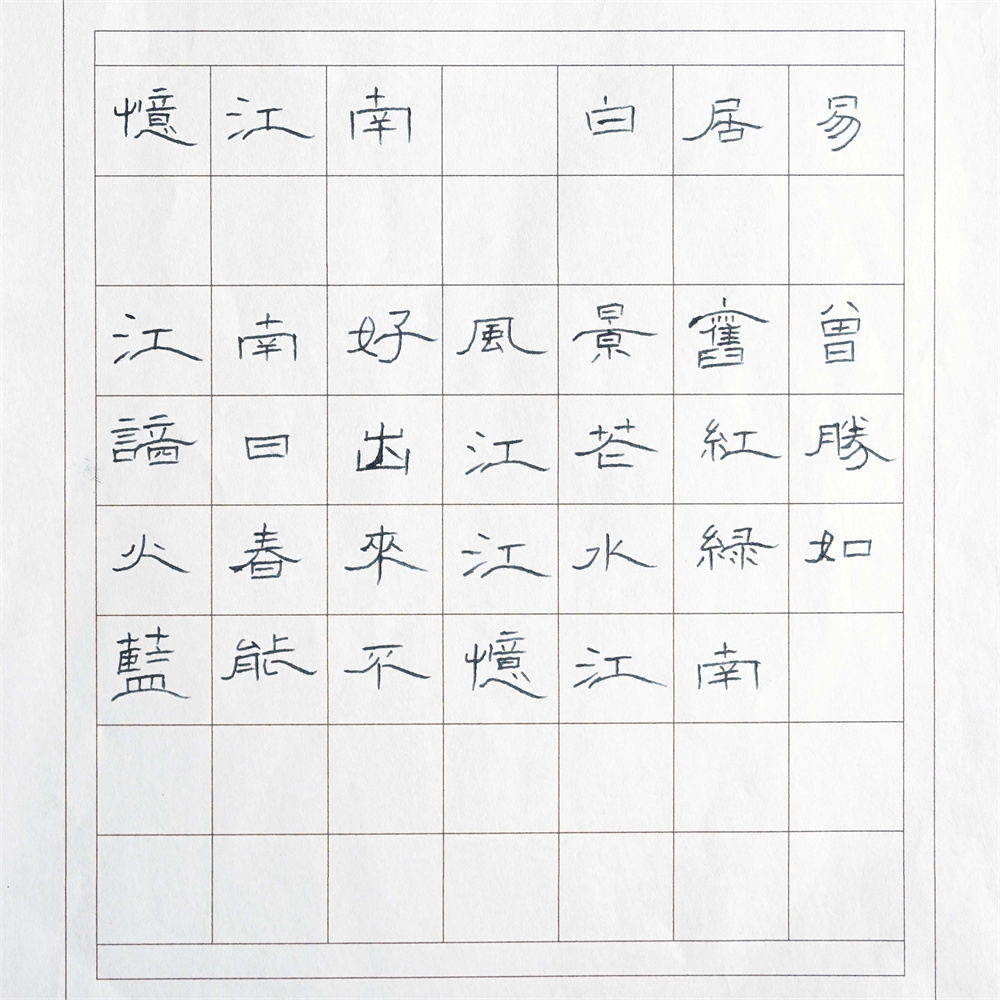 憶江南 白居易
江南好風景舊曾
諳日出江花紅勝
火春來江水緑如
藍能不憶江南